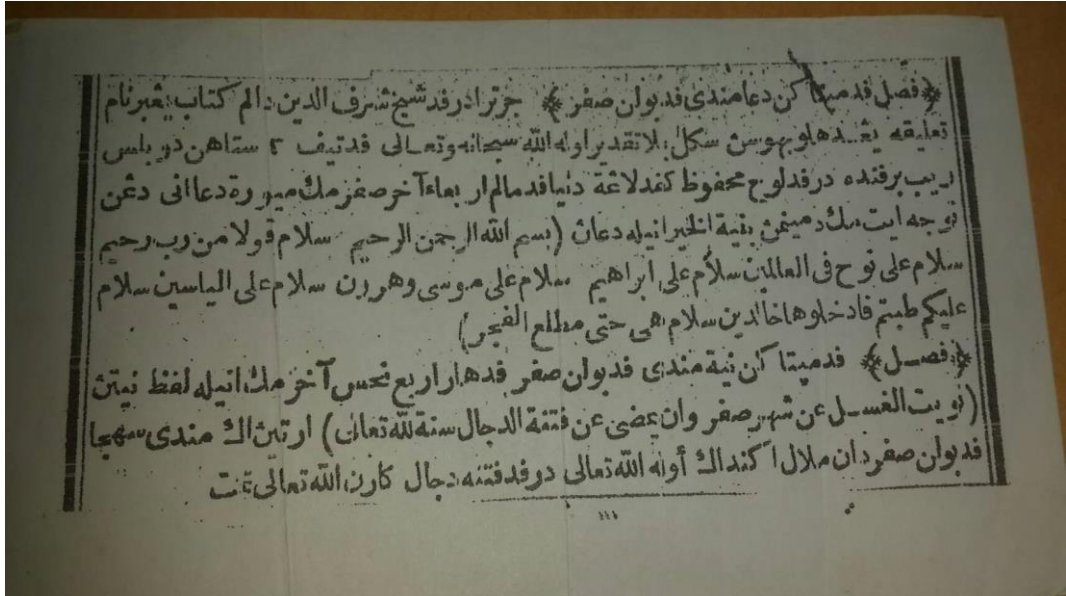 ﴿فصل فدمپتاكن دعا مندى فد بولن صفر﴾ چرترا درفد شيخ شرف الدين دالم كتاب يڠبرنام
تعليقه يڠ دهلو بهوسن سكل بلا تقدير اوله الله سبحانه وتعالى فد تيف ٢ ستاهن دو بلس
ريب برفنده درفد لوح محفوظ كفد لاغة دنيا فد مالم اربعاء آخر صفر مك ميورة دعا انى دغن
توجه ايت مك دمينمن بنية الخير انيله دعان (بسم الله الرحمن الرحيم سلام قولا من رب رحيم
سلام على نوح فى العالمين سلام على ابراهيم سلام على موسى وهرون سلام على الياسين سلام
عليكم طبتم فادخلوها خالدين سلام هى حتى مطلع الفجر)
﴿فصل﴾ فدمپتاكن نية مندى فد بولن صفر فد هار اربع نحس آخر مك انيله لفظ نيتن
(نويت الغسل عن شهر صفر وان عضى عن فتنة الدجال سنة لله تعالى) ارتين اك مندى سهجا
فد بولن صفر دان ملالاكند اك أوله الله تعالى درفد فتنه دجال كارن الله تعالى تمت